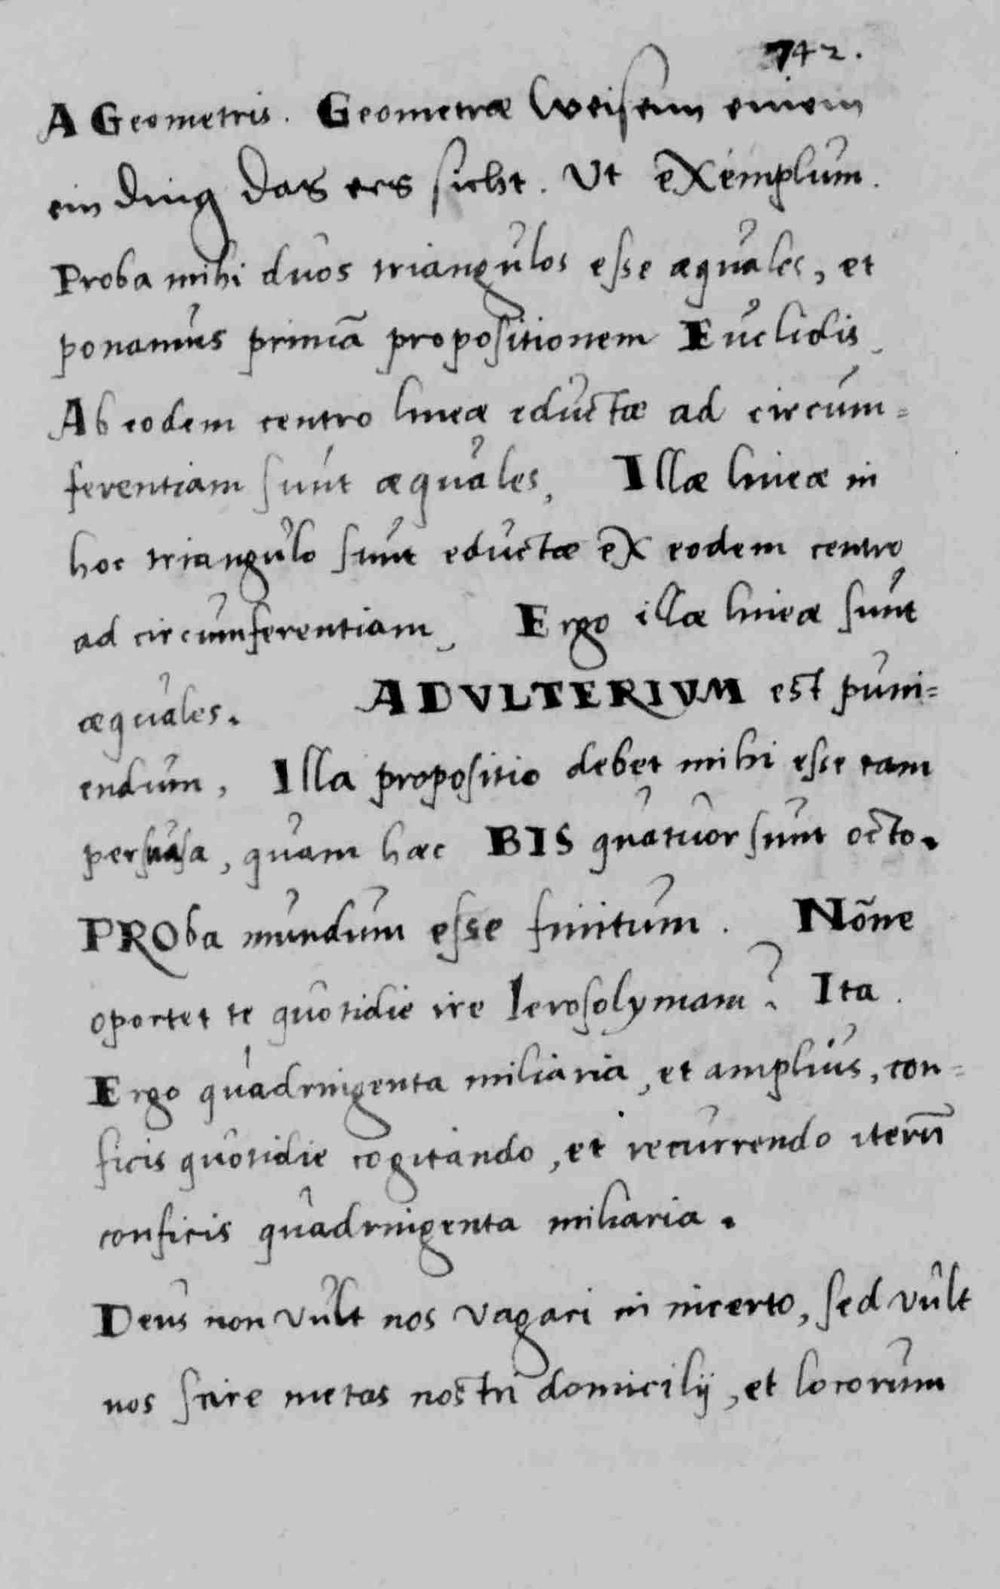 742.
A Geometris. Geometræ weisenn einem
ein ding das ers sicht. Ut exemplum.
Proba mihi duos triangulos esse æquales, et
ponamus primā propositionem Euclidis,
Ab eodem centro lineæ eductæ ad circum=
ferentiam sunt æquales, Illæ lineæ in
hoc triangulo sunt eductæ ex eodem centro
ad circumferentiam, Ergo illæ lineæ sunt
æquales. ADVLTERIVM est puni=
endum, Illa propositio debet mihi esse tam
persuasa, quam hæc BIS quatuor sunt octo.
PROba mundum esse finitum. Nōne
oportet te quotidie ire Ierosolymam? Ita.
Ergo quadringenta miliaria, et amplius, con=
ficis quotidie cogitando, et recurrendo iterū
conficis quadringenta miliaria.
Deus non vult nos vagari in incerto, sed vult
nos scire metas nostri domicilij, et locorum